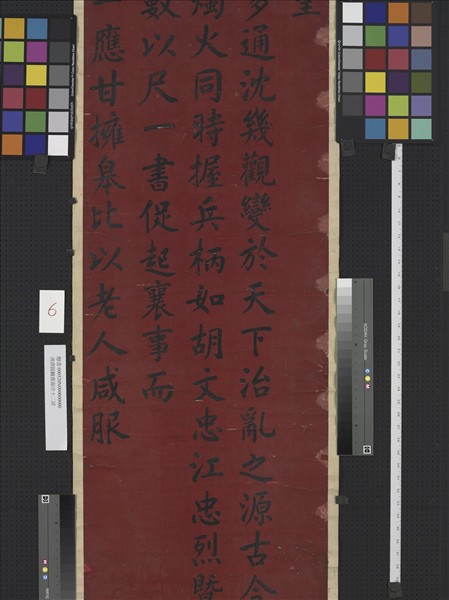 多通沈幾觀變於天下治亂之源古今
燭火同時握兵柄如胡文忠江忠烈暨
數以尺一書促起襄事而
應甘擁皋比以老人咸服
6